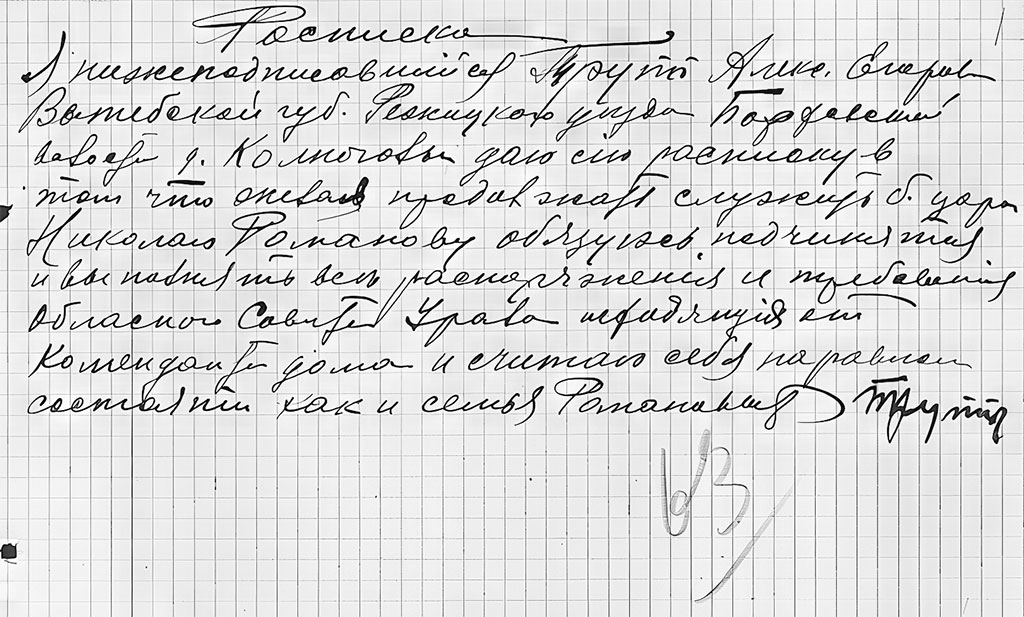 Росписка
Я нижеподписавшийся Трупп Алекс. Егоров
Витебской губ. Режицкого уезда Борховской
волости д. Колногова даю сию расписку в
том что желая продолжать служить б. царю
Николаю Романову обязуюсь подчинятся
и выполнять все распоряжения и требования
Обласного Совета Урала исходящия от
Коменданта дома и считать себя на равном
состоянии как и семья Романовых Трупп